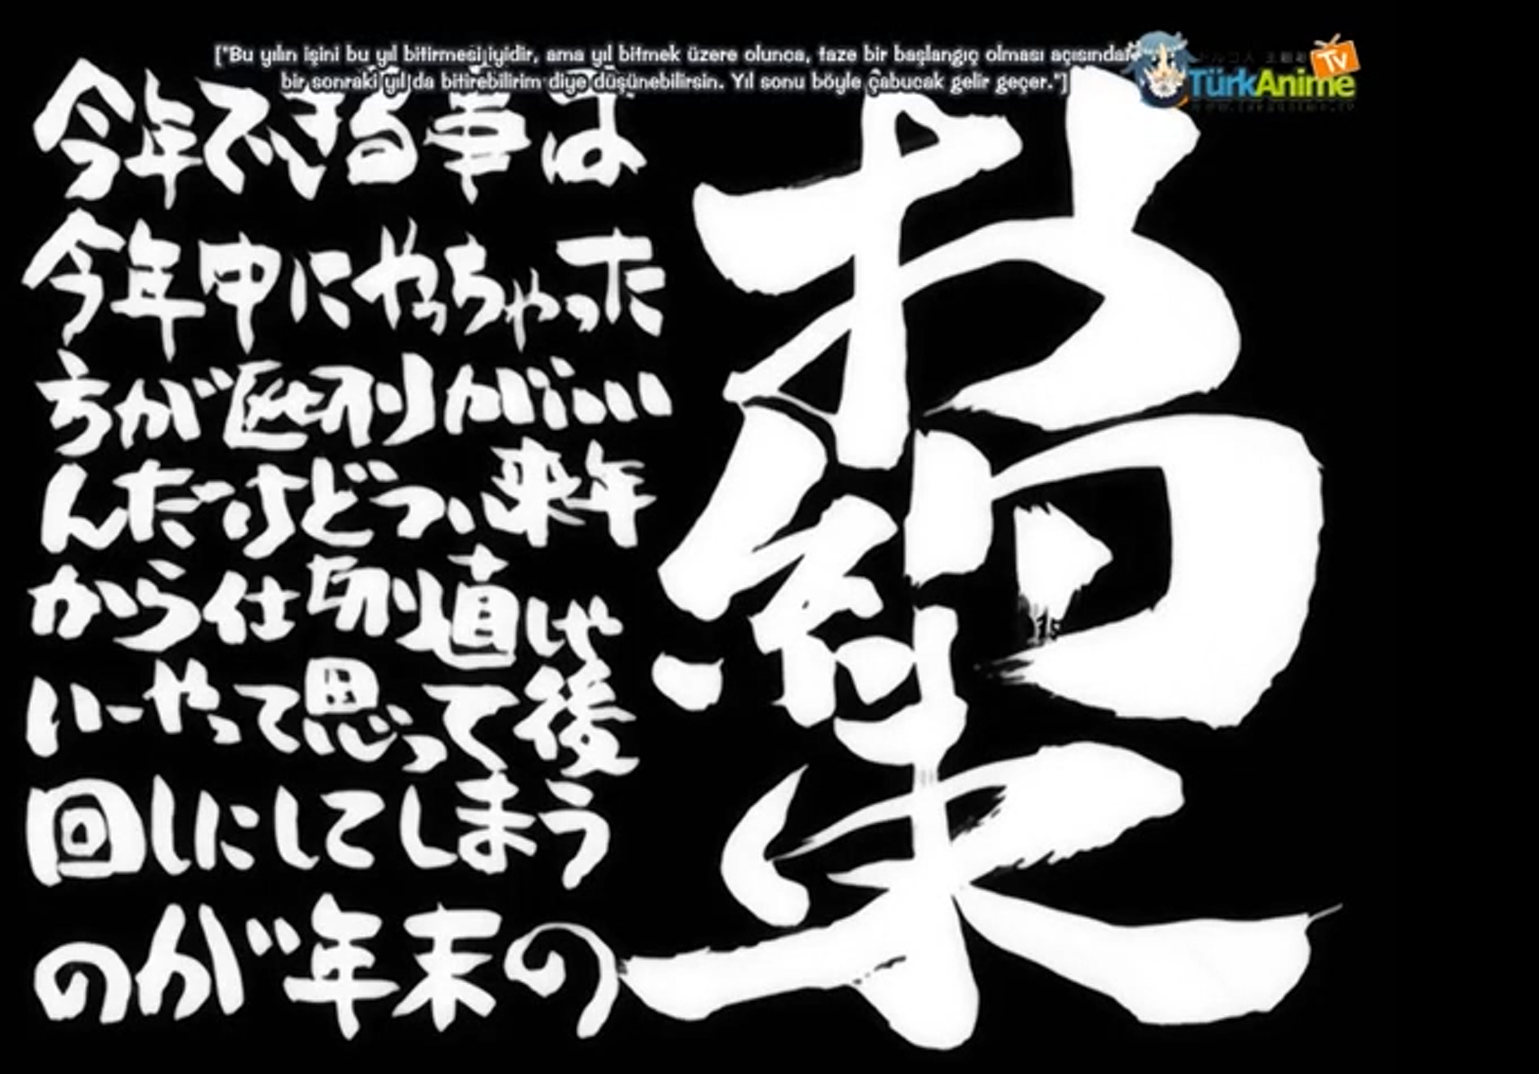 ["Bu yılın işini bu yıl bitirmesi iyidir, ama yıl bitmek üzere olunca, taze bir başlangıç olması açısından
bir sonraki yıl da bitirebilirim diye düşünebilirsin. Yıl sonu böyle çabucak gelir geçer."]
TürkAnime Tv
今年できる事は
今年中にやっちゃった
方が区切りがいい
んだけどつい来年
から仕切り直しゃ
いーやって思って後
回しにしてしまう
のが年末の
お約束